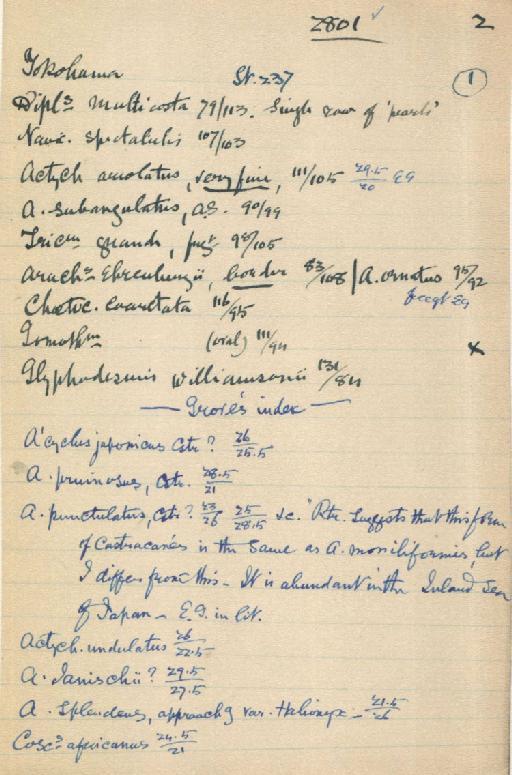 2801 ✓ 2
Yokohama St. 237 1
Dipls multicosta 79/103. Single row of 'pearls'
Navic. spectabilis 107/103
Actych areolatus, very fine, 111/105 29.5/20 EG
A. subangulatus, A.S. 90/99
Tricm grande, fragt 98/105
Arachs Ehrenbergii, border 83/108 | A. ornatus 95/92
fragt 89
Chaetoc. coarctata 116/95
Gomothm (oval) 111/94 x
Glyphodesmis williamsonii 131/84
— Grove's index —
A'cyclus japonicus Cstr? 26/25.5
A. pruinosus, Cstr. 28.5/21
A. punctulatus, Cstr? 23/26 25/28.5 &c. "Rtr. suggests that this form
of Castracane's is the same as A. moniliformis, but
I differ from this - It is abundant in the Inland Sea
of Japan - E.G. in lit.
Actych. undulatus 26/22.5
A. Janischii? 29.5/27.5
A. splendens, approachg var. Halionyx - 21.5/26
Coscs africanus 24.5/21